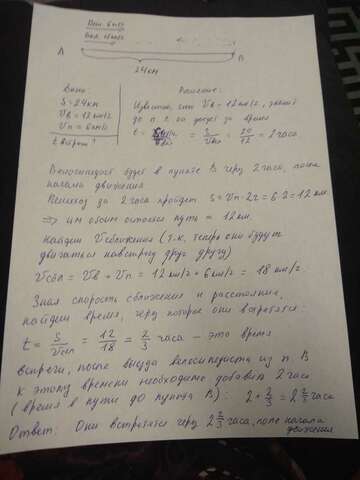 Пеш. 6 км/ч
Вел. 12 км/ч
А В
24 км
Дано:
S = 24 км
Vв = 12 км/ч
Vп = 6 км/ч
t встречи?
Решение:
Известно, что Vв = 12 км/ч, значит
до п. В он доедет за время
t = S/Vвел = 2 часа
Велосипедист будет в пункте В через 2 часа, после
начала движения
Пешеход за 2 часа пройдет S = Vп · 2ч = 6 · 2 = 12 км.
⇒ им обоим останется путь = 12 км.
Найдем Vсближения (т.к. теперь они будут
двигаться навстречу друг другу)
Vсбл = Vв + Vп = 12 км/ч + 6 км/ч = 18 км/ч.
Зная скорость сближения и расстояние,
найдем время, через которое они встретятся:
t = S/Vсбл = 12/18 = 2/3 часа – это время
встречи, после выезда велосипедиста из п. В
К этому времени необходимо добавить 2 часа
(время в пути до пункта В): 2 + 2/3 = 2 2/3 часа
Ответ: Они встретятся через 2 2/3 часа, после начала
движения